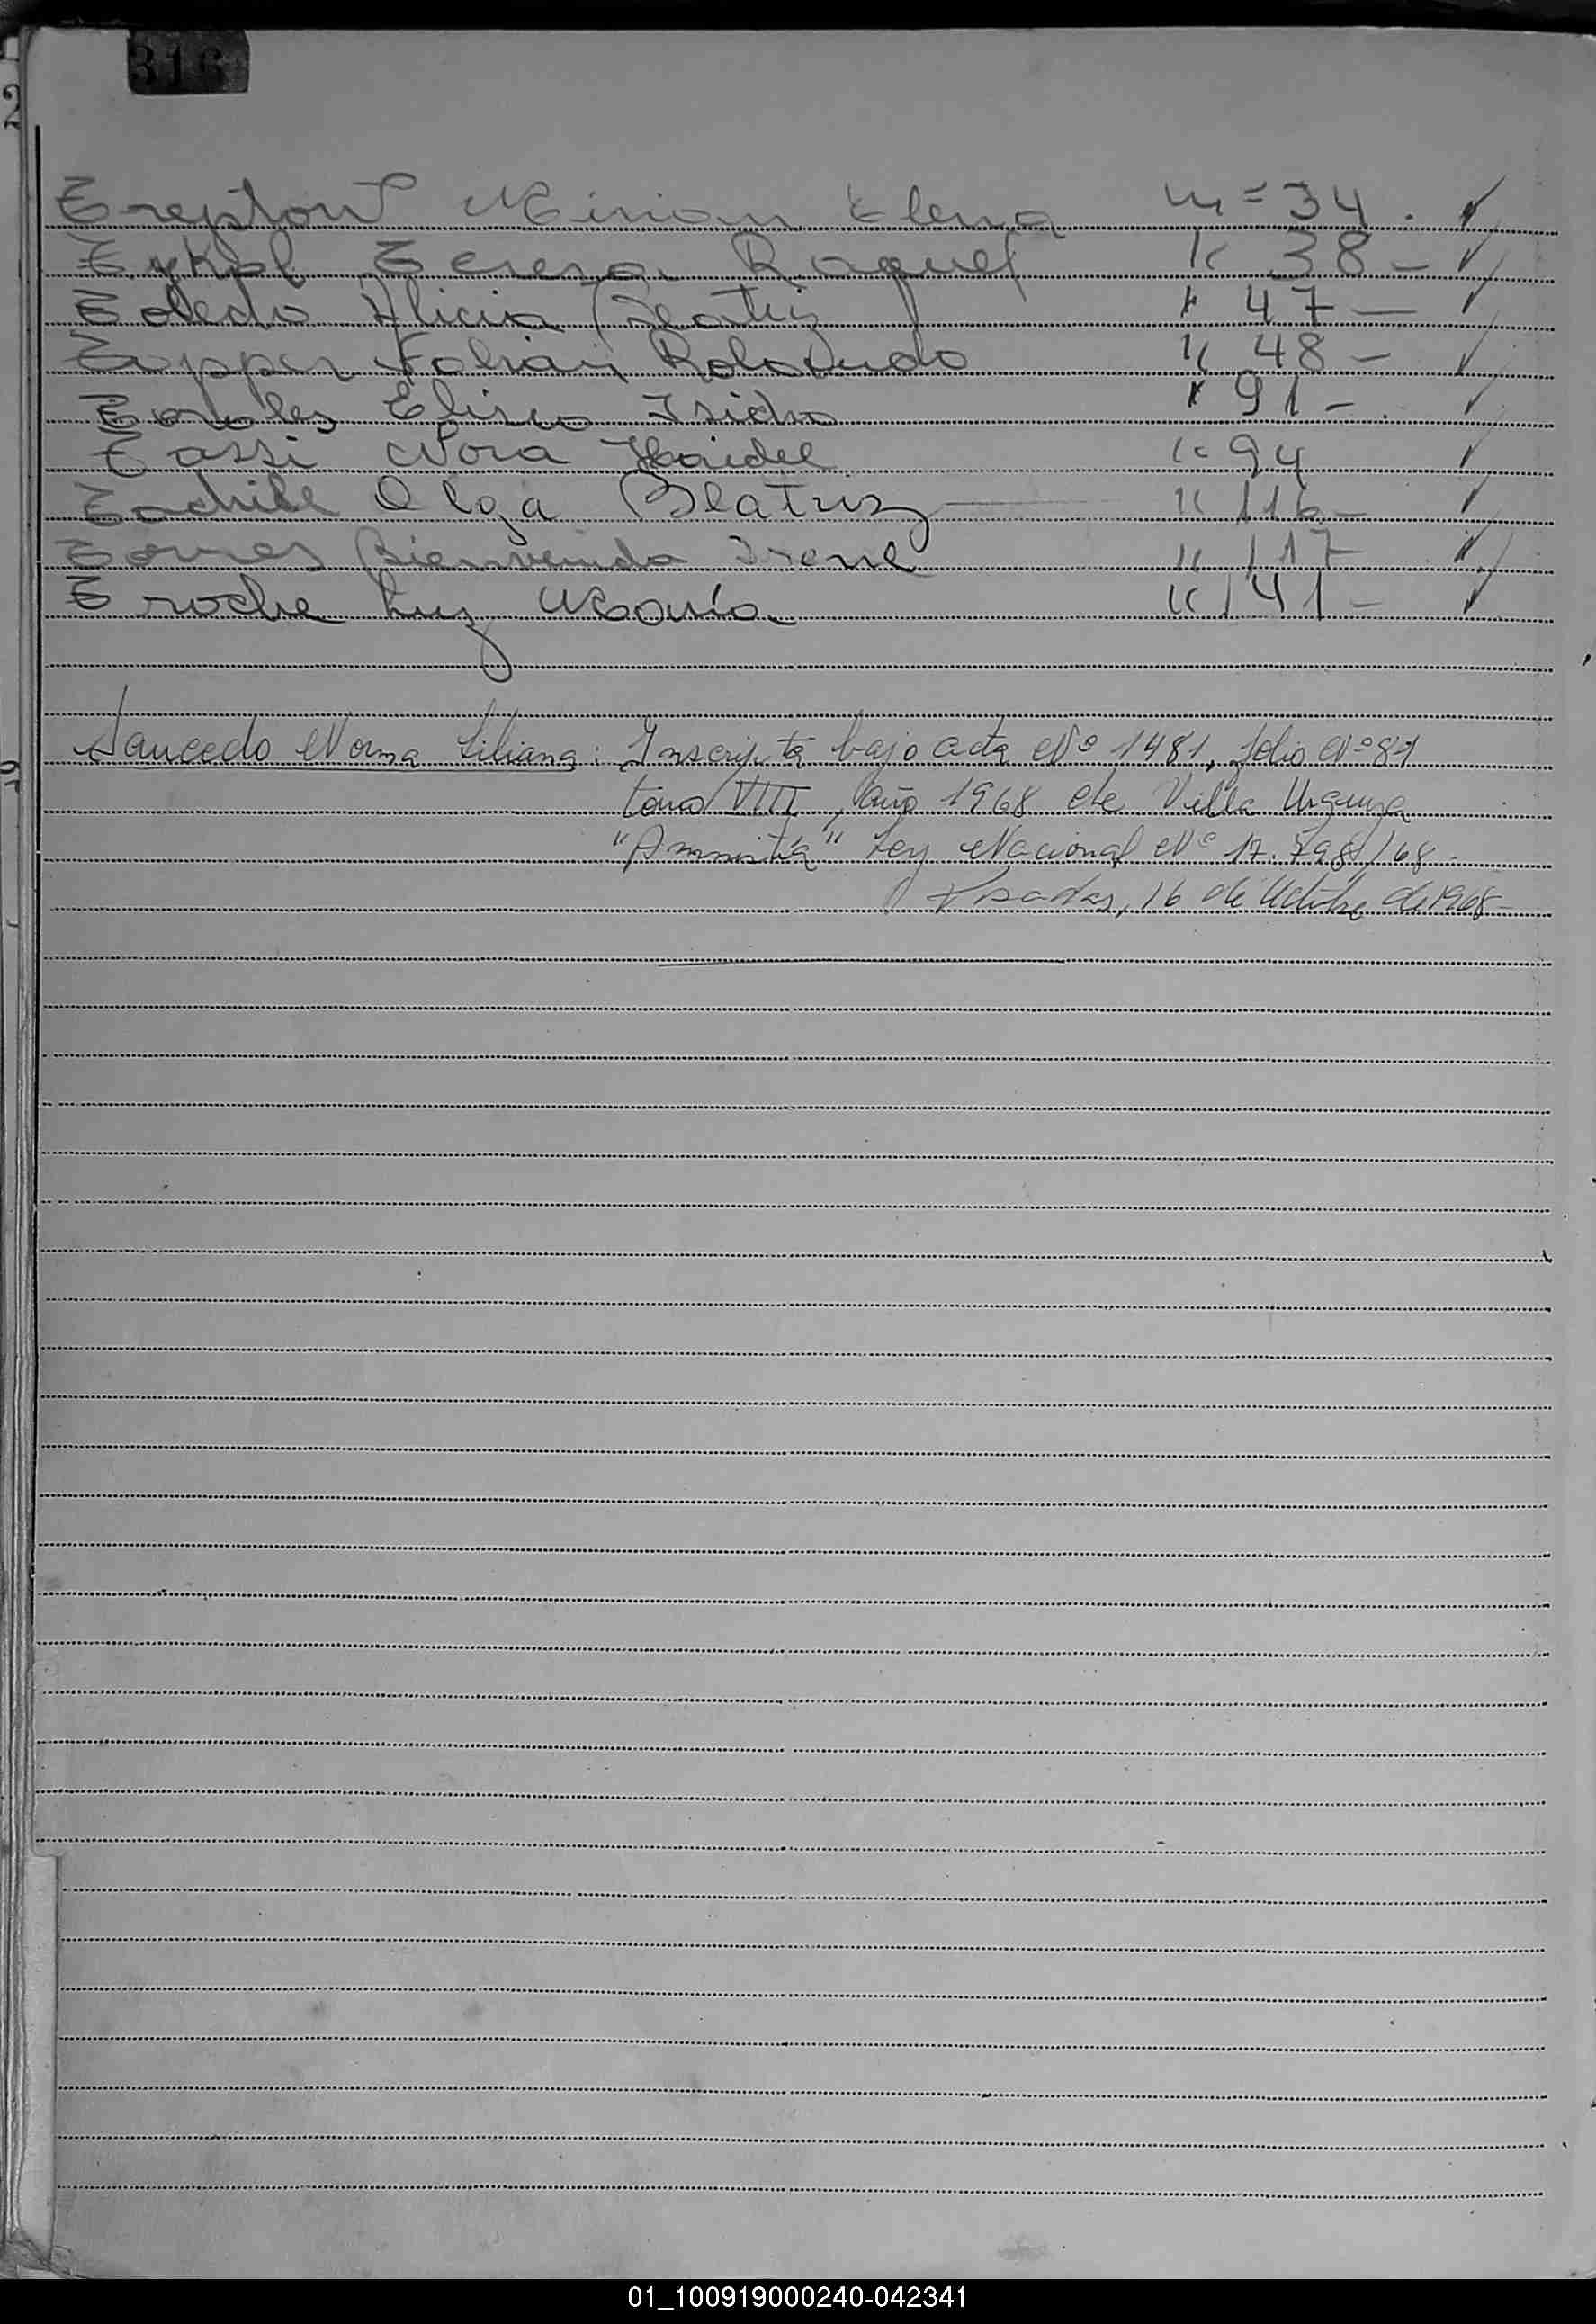 316
Treptow Miriam Elena m=34. ✓
Tykol Teresa Raquel " 38 - ✓
Toledo Alicia Beatriz " 47 — ✓
Fabian Rolando " 48 - ✓
Eliseo Isidro " 91 -. ✓
Tassi Nora Haidee " 94 ✓
Olga Beatriz " 116 - ✓
Torres Bienvenida Irene " 117 ✓
Troche Luz María " 141 - ✓
Saucedo Norma Liliana: Inscripta bajo acta Nº 1481, folio Nº 81
tomo VIII, año 1968 de Villa Urquiza
"Amnistía" Ley Nacional Nº 17.798/68.
Posadas, 16 de Octubre de 1968-
01_100919000240-042341